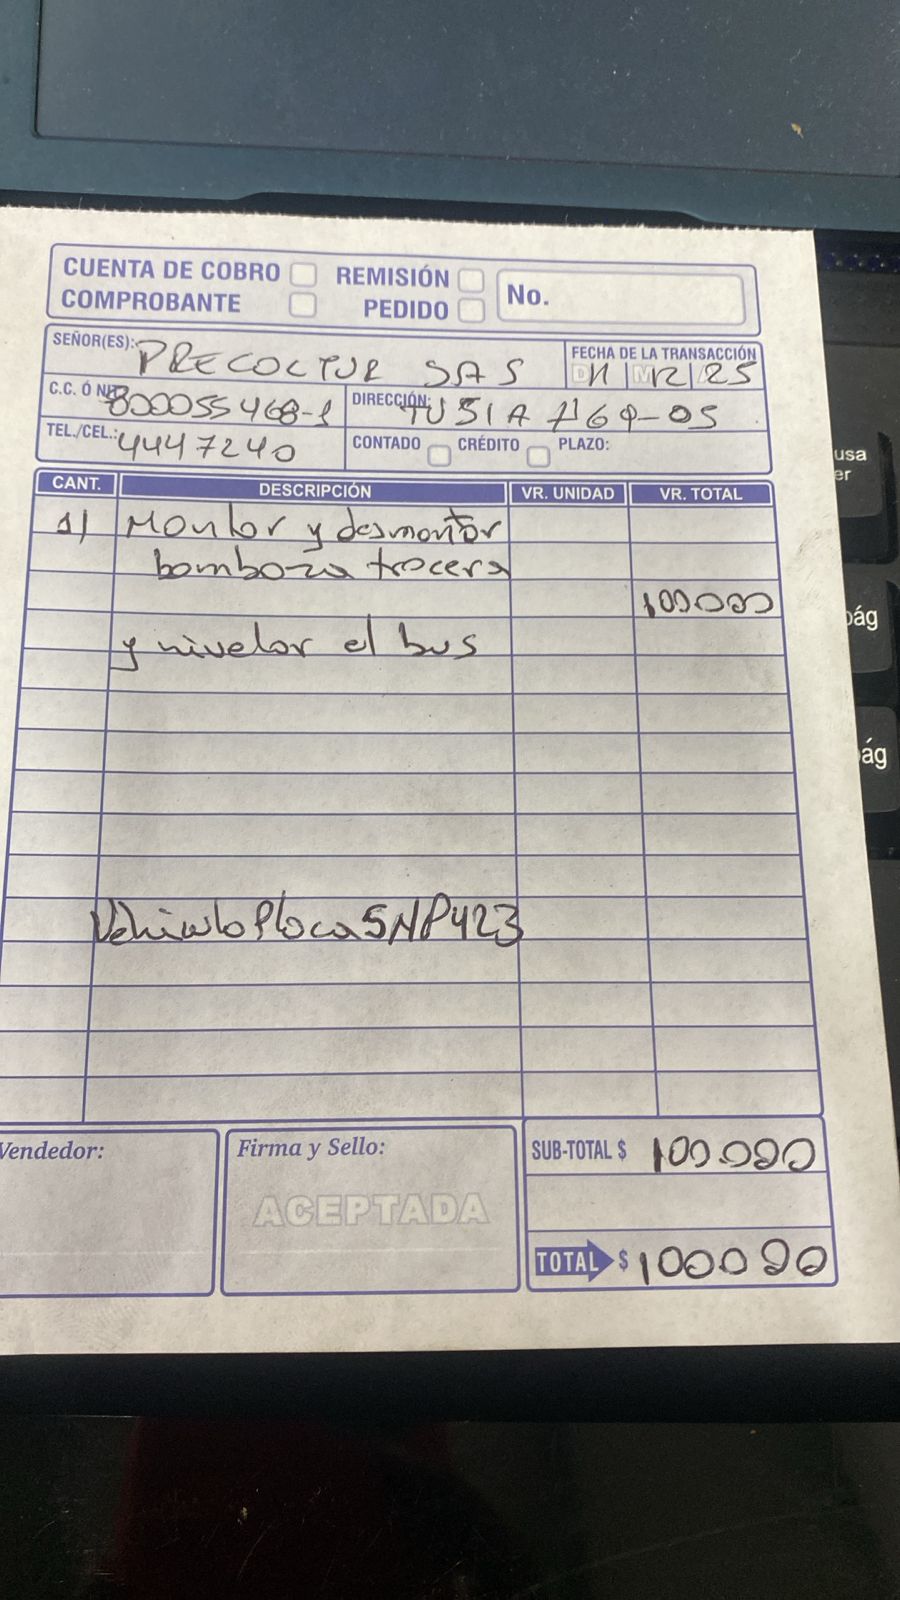 CUENTA DE COBRO REMISIÓN No.
COMPROBANTE PEDIDO
SEÑOR(ES): PRECOLTUR SAS
FECHA DE LA TRANSACCIÓN
11 12 25
C.C. Ó NIT 800055468-1 DIRECCIÓN:
TEL./CEL.: 4447240 CONTADO CRÉDITO PLAZO:
CANT. DESCRIPCIÓN VR. UNIDAD VR. TOTAL
1) Montar y desmontar
bomboza tracera
100000
y nivelar el bus
Vehiculo Placa SNP423
Vendedor: Firma y Sello: SUB-TOTAL $ 100.000
ACEPTADA
TOTAL $ 100000
usa
er
pág
ág